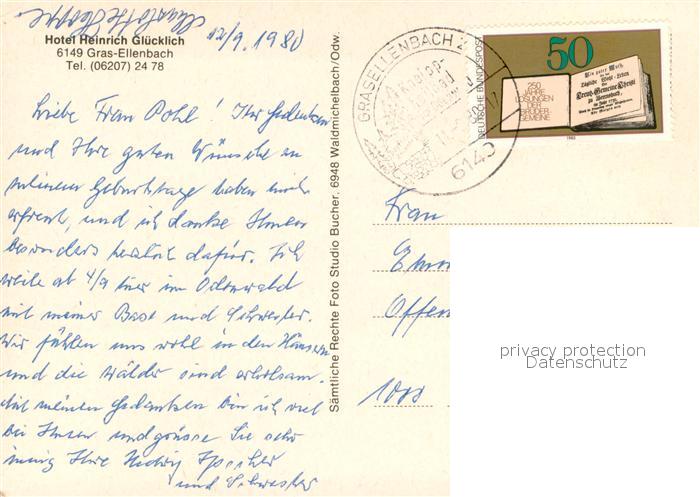 12/9. 1980
Hotel Heinrich Glücklich
6149 Gras-Ellenbach
Tel. (06207) 24 78
Liebe Frau Pohl! Ihr Gedenken
und Ihre guten Wünsche zu
meinem Geburtstage haben mich
erfreut, und ich danke Ihnen
besonders herzlich dafür. Ich
weile ab 4/9 hier im Odenwald
mit meiner Base und Schwester.
Wir fühlen uns wohl in den Häusern
und die Wälder sind erholsam.
Mit meinen Gedanken bin ich viel
bei Ihnen und grüsse Sie sehr
innig Ihre Hedwig
und Schwester
Sämtliche Rechte Foto Studio Bucher. 6948 Waldmichelbach/Odw.
GRASELLENBACH 2
6149
DEUTSCHE BUNDESPOST
50
250
JAHRE
LOSUNGEN
DER
BRÜDER-
GEMEINE
1980
Frau
Offen
1000
privacy protection
Datenschutz